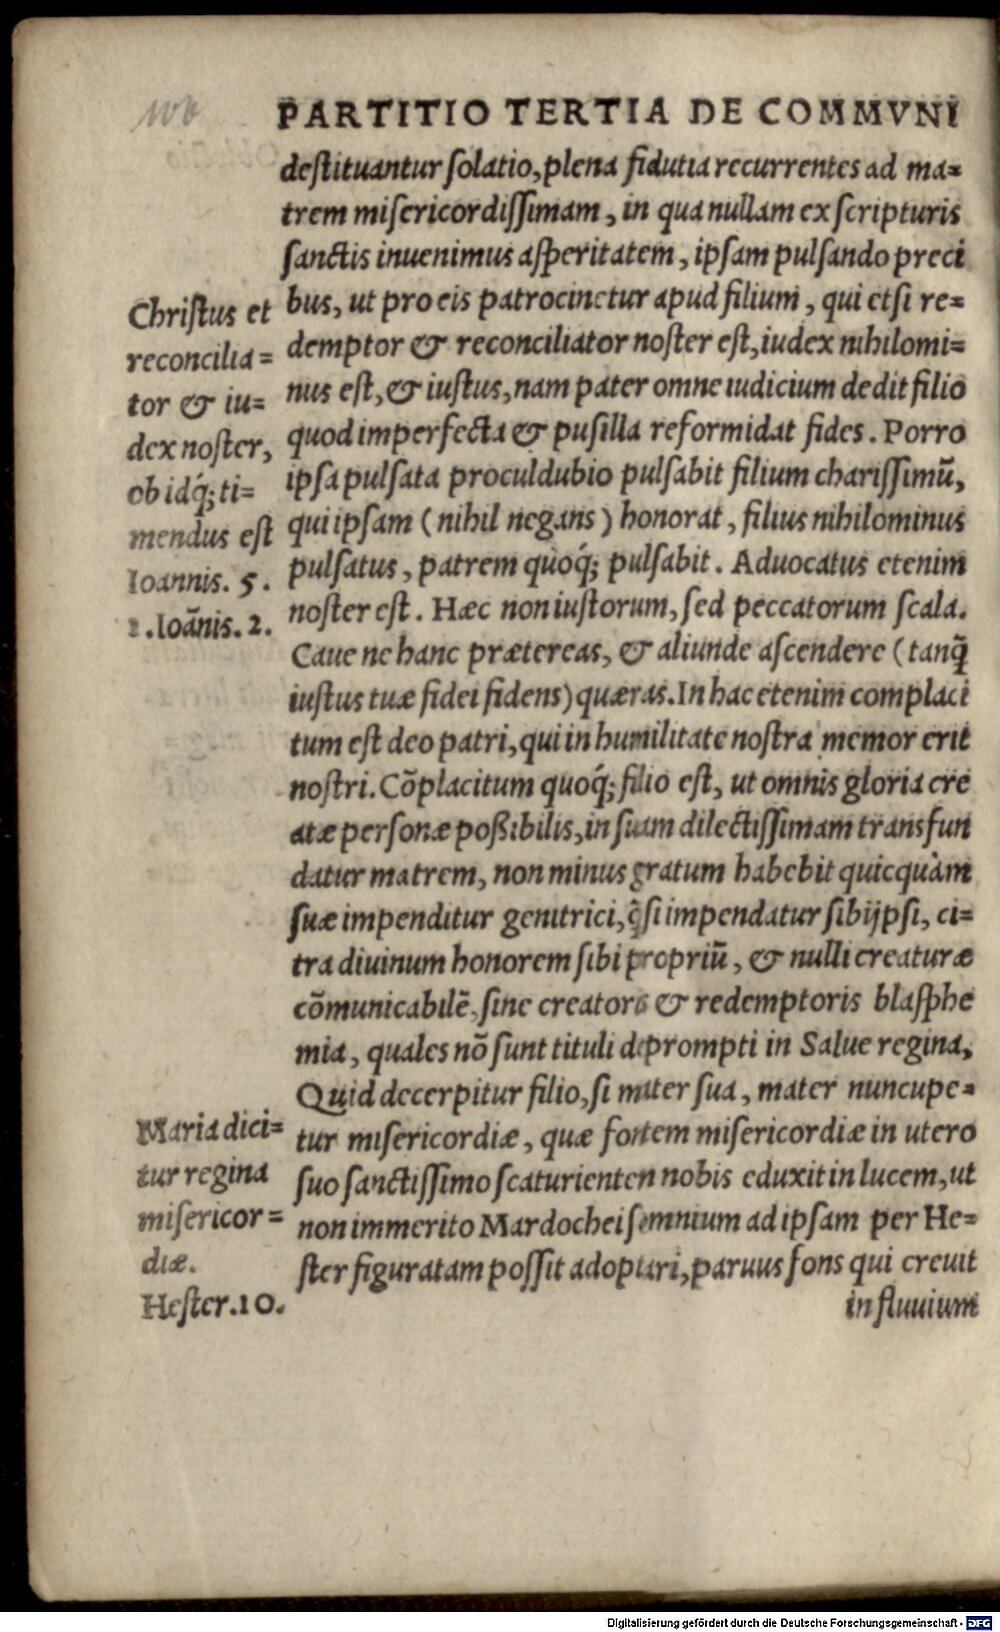 PARTITIO TERTIA DE COMMVNI
deſtituantur ſolatio, plena fidutia recurrentes ad ma=
trem miſericordiſſimam, in qua nullam ex ſcripturis
ſanctis inuenimus aſperitatem, ipſam pulſando preci
bus, ut pro eis patrocinetur apud filium, qui etſi re=
demptor & reconciliator noſter eſt, iudex nihilomi=
nus eſt, & iuſtus, nam pater omne iudicium dedit filio
quod imperfecta & puſilla reformidat fides. Porro
ipſa pulſata proculdubio pulſabit filium chariſſimū,
qui ipſam (nihil negans) honorat, filius nihilominus
pulſatus, patrem quoq́; pulſabit. Aduocatus etenim
noſter eſt. Hæc non iuſtorum, ſed peccatorum ſcala.
Caue ne hanc prætereas, & aliunde aſcendere (tanq̃
iuſtus tuæ fidei fidens) quæras. In hac etenim complaci
tum eſt deo patri, qui in humilitate noſtra memor erit
noſtri. Cõplacitum quoq́; filio eſt, ut omnis gloria cre
atæ perſonæ poßibilis, in ſuam dilectiſſimam transfun
datur matrem, non minus gratum habebit quicquàm
ſuæ impenditur genitrici, q̃ ſi impendatur ſibijpſi, ci=
tra diuinum honorem ſibi propriū, & nulli creaturæ
cõmunicabilẽ, ſine creatoris & redemptoris blaſphe
mia, quales nõ ſunt tituli deprompti in Salue regina,
Quid decerpitur filio, ſi mater ſua, mater nuncupe=
tur miſericordiæ, quæ fontem miſericordiæ in utero
ſuo ſanctiſſimo ſcaturienten nobis eduxit in lucem, ut
non immerito Mardochei ſomnium ad ipſam per He=
ſter figuratam poſſit adoptari, paruus fons qui creuit
in fluuium
Chriſtus et
reconcilia=
tor & iu=
dex noſter,
ob idq́; ti=
mendus eſt
Ioannis. 5.
1. Ioãnis. 2.
Maria dici=
tur regina
miſericor=
diæ.
Heſter. 10.
Digitalisierung gefördert durch die Deutsche Forschungsgemeinschaft - DFG